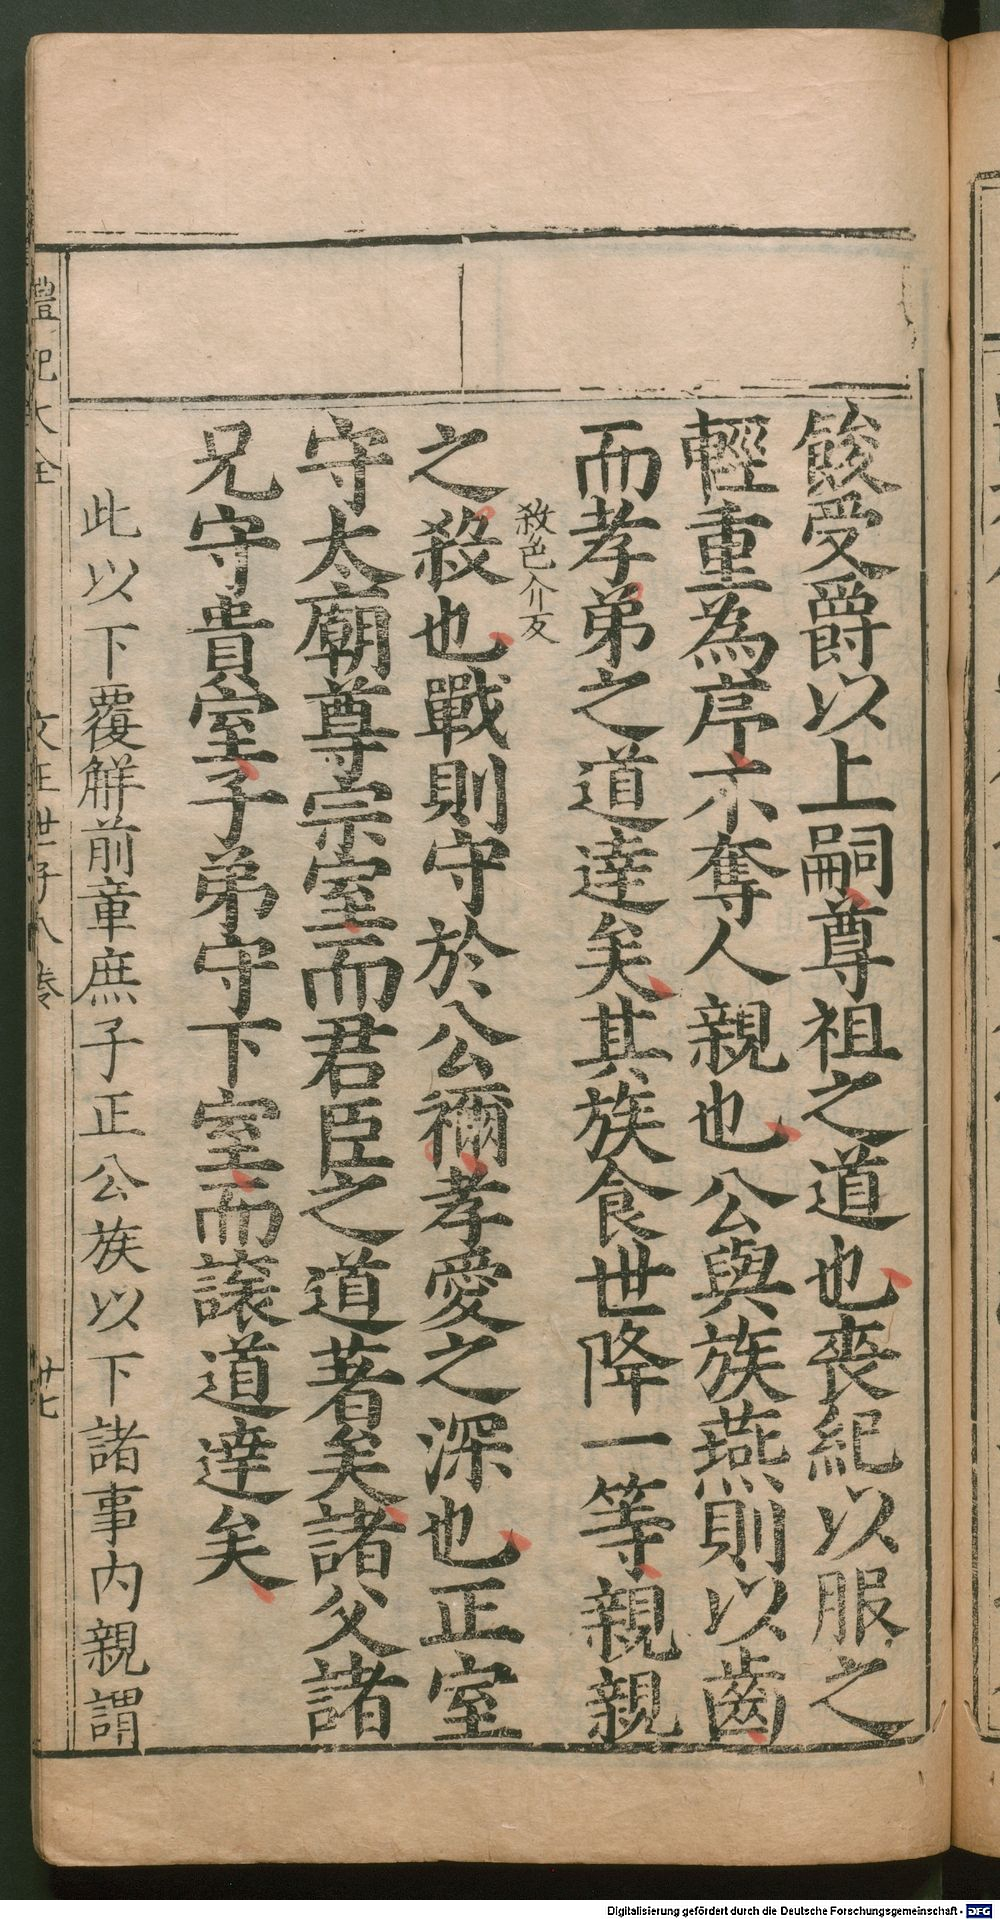 餕受爵以上嗣尊祖之道也喪紀以服之
輕重為序不奪人親也公與族燕則以齒
而孝弟之道達矣其族食世降一等親親
殺色介反
之殺也戰則守於公禰孝愛之深也正室
守太廟尊宗室而君臣之道著矣諸父諸
兄守貴室子弟守下室而讓道達矣
此以下覆解前章庶子正公族以下諸事內親謂
禮記大全 文王世子八卷 廿七
Digitalisierung gefördert durch die Deutsche Forschungsgemeinschaft - DFG